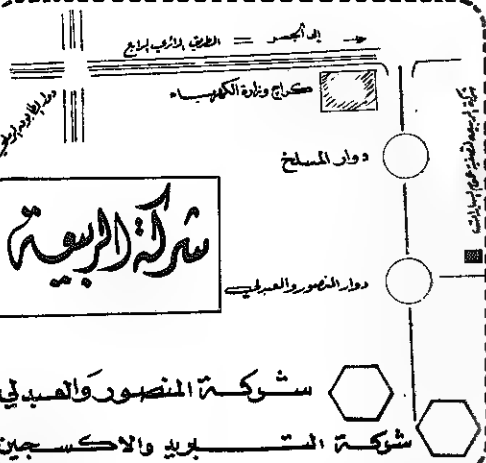 إلى الجسر = الطريق الدائري الرابع
كراج وزارة الكهرباء
دوار المسلخ
شركة الربيعة
دوار المنصور والعبدلي
شركة المنصور والعبدلي
شركة التبريد والاكسجين